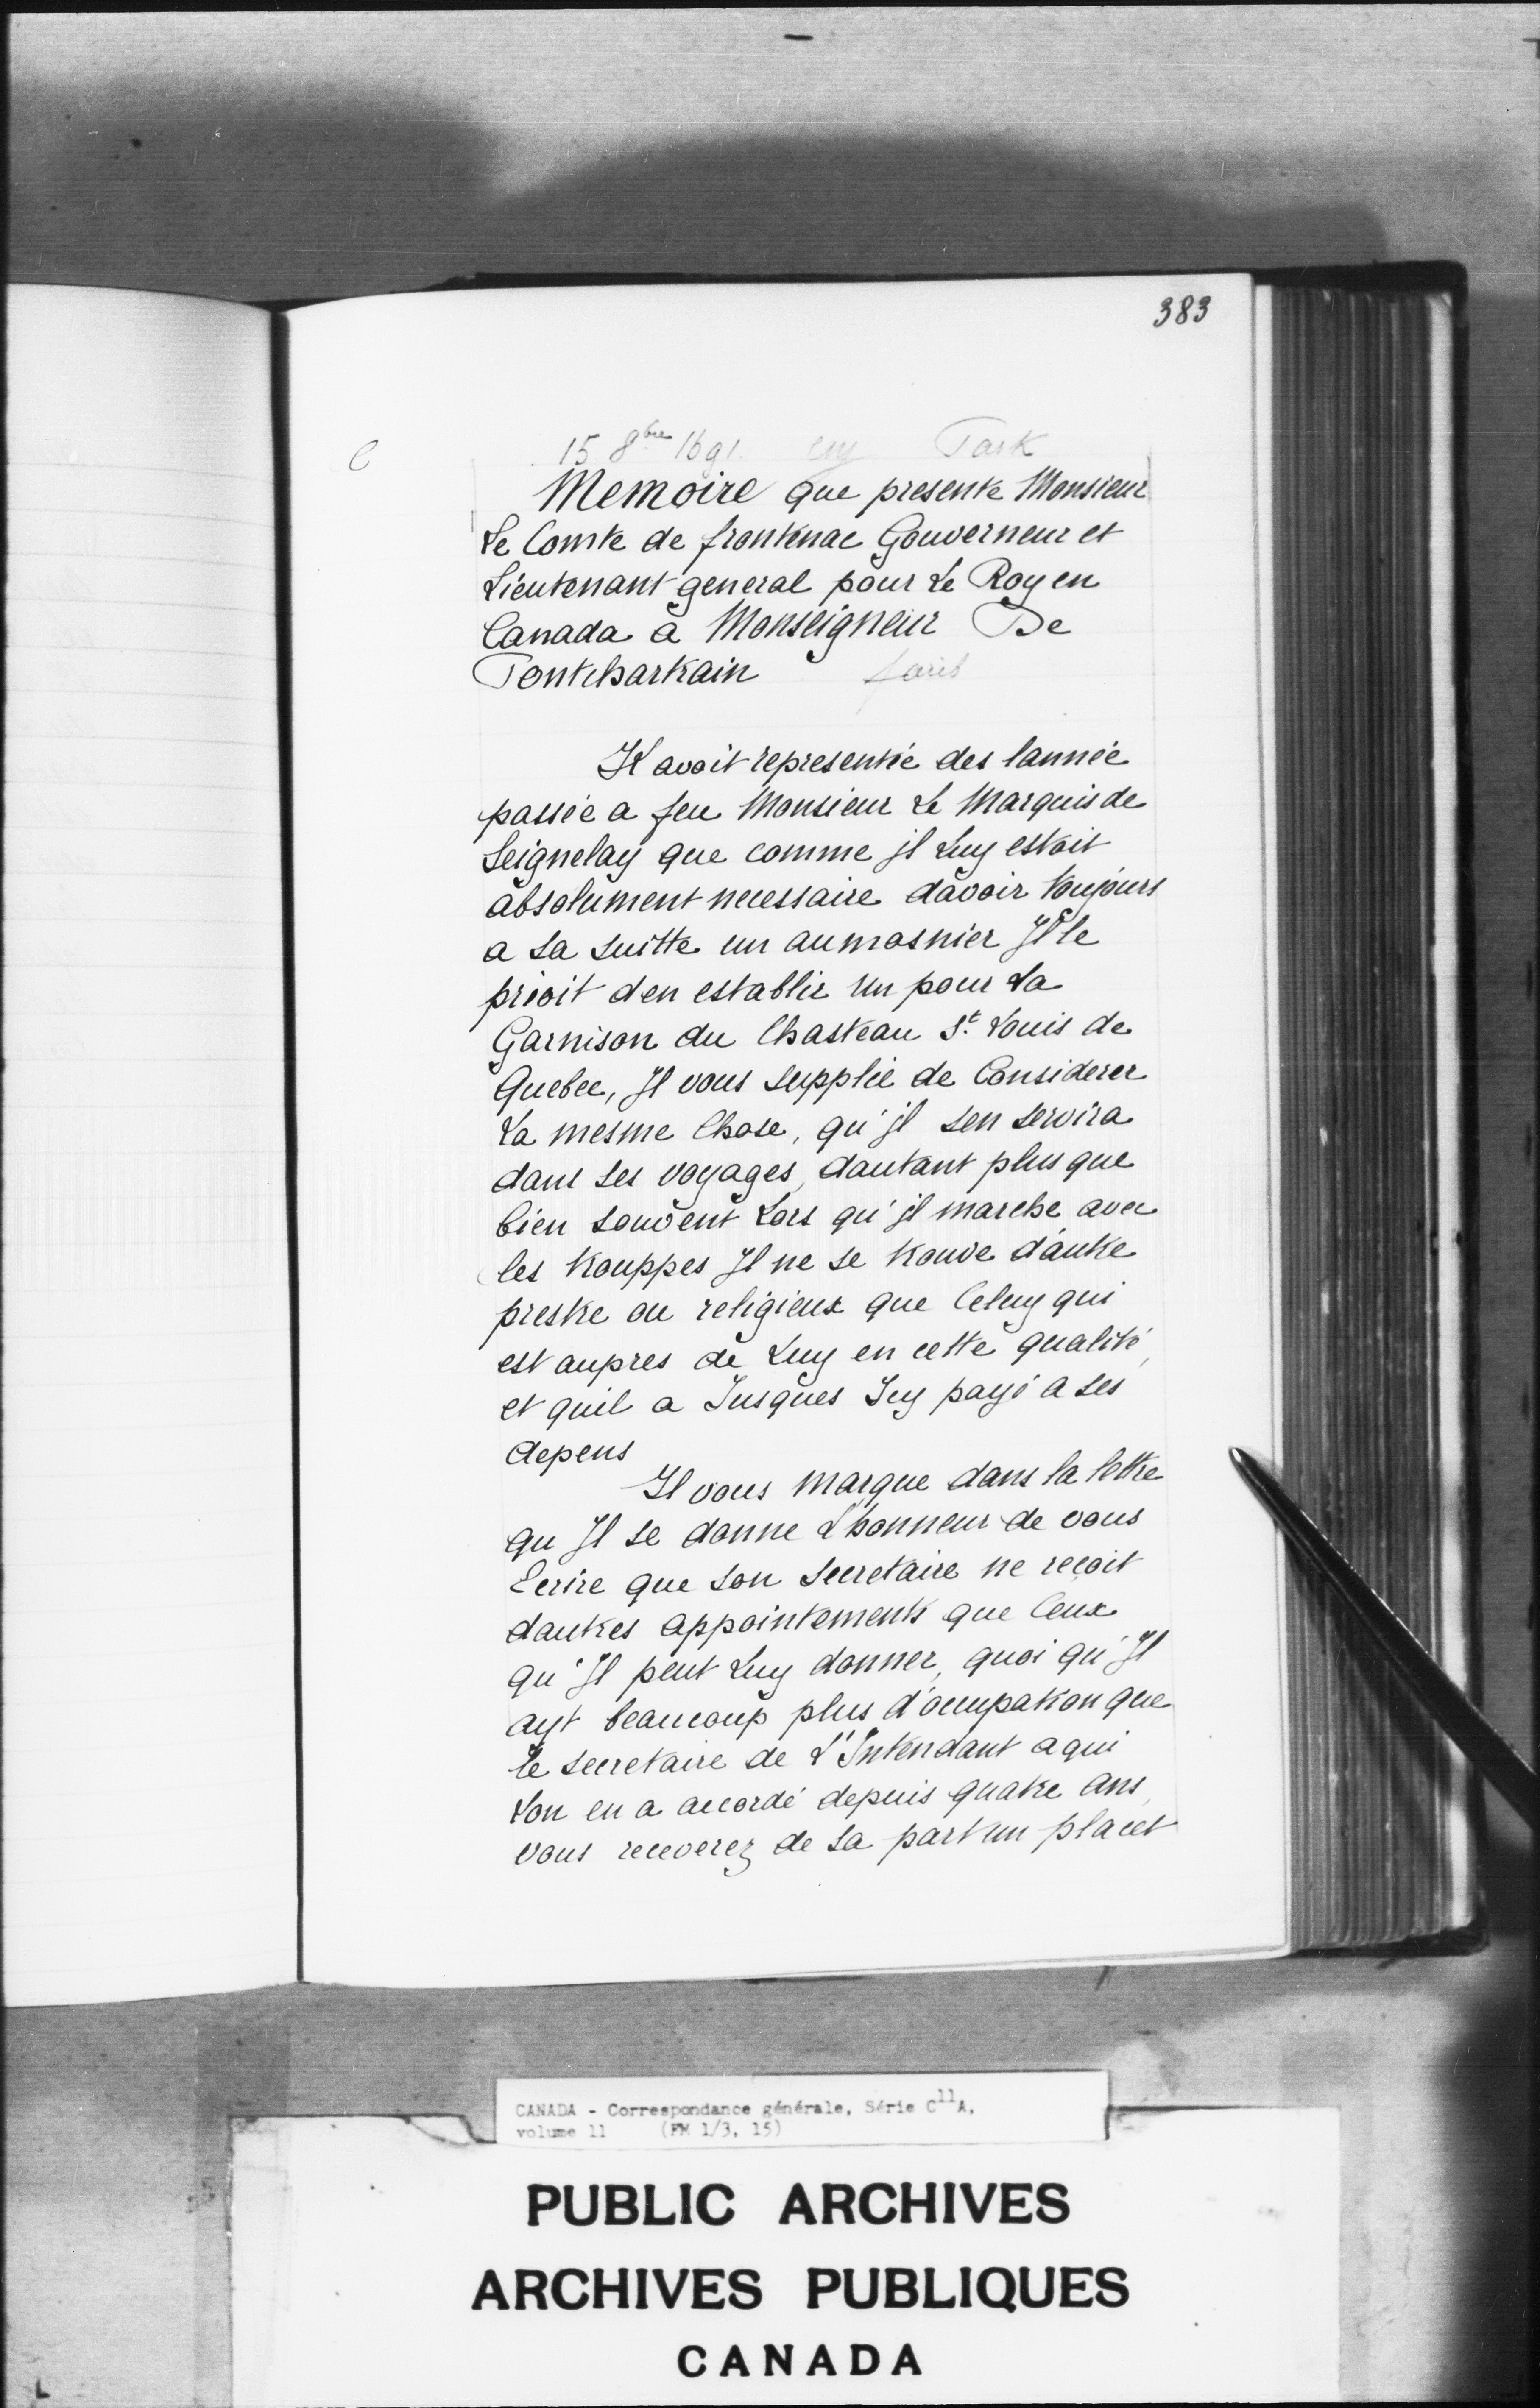 383
15 8bre 1691.
Memoire que presente Monsieur
Le Comte de frontenac Gouverneur et
Lieutenant general pour Le Roy en
Canada a Monseigneur De
Pontchartrain
Il avoit representée des lannée
passée a feu Monsieur Le Marquis de
Seignelay que comme jl Luy estoit
absolument necessaire davoir toujours
a sa suitte un aumosnier Il le
prioit den establir un pour La
Garnison du Chasteau St. Louis de
Quebec, Il vous supplie de Considerer
La mesme Chose, qu'jl sen servira
dans ses voyages, dautant plus que
bien souvent Lors qu'jl marche avec
les trouppes Il ne se trouve d'autre
prestre ou religieux que Celuy qui
est aupres de Luy en cette qualité,
et quil a Jusques Icy payé a ses
depens
Il vous marque dans la lettre
qu Il se donne L'honneur de vous
Ecrire que son secretaire ne reçoit
dautres appointements que Ceux
qu'Il peut Luy donner, quoi qu'Il
ayt beaucoup plus d'occupation que
le secretaire de L'Intendant a qui
Lon en a accordé depuis quatre ans,
vous receverez de sa part un placet
CANADA - Correspondance générale, Série C11A,
volume 11 (FM 1/3, 15)
PUBLIC ARCHIVES
ARCHIVES PUBLIQUES
CANADA